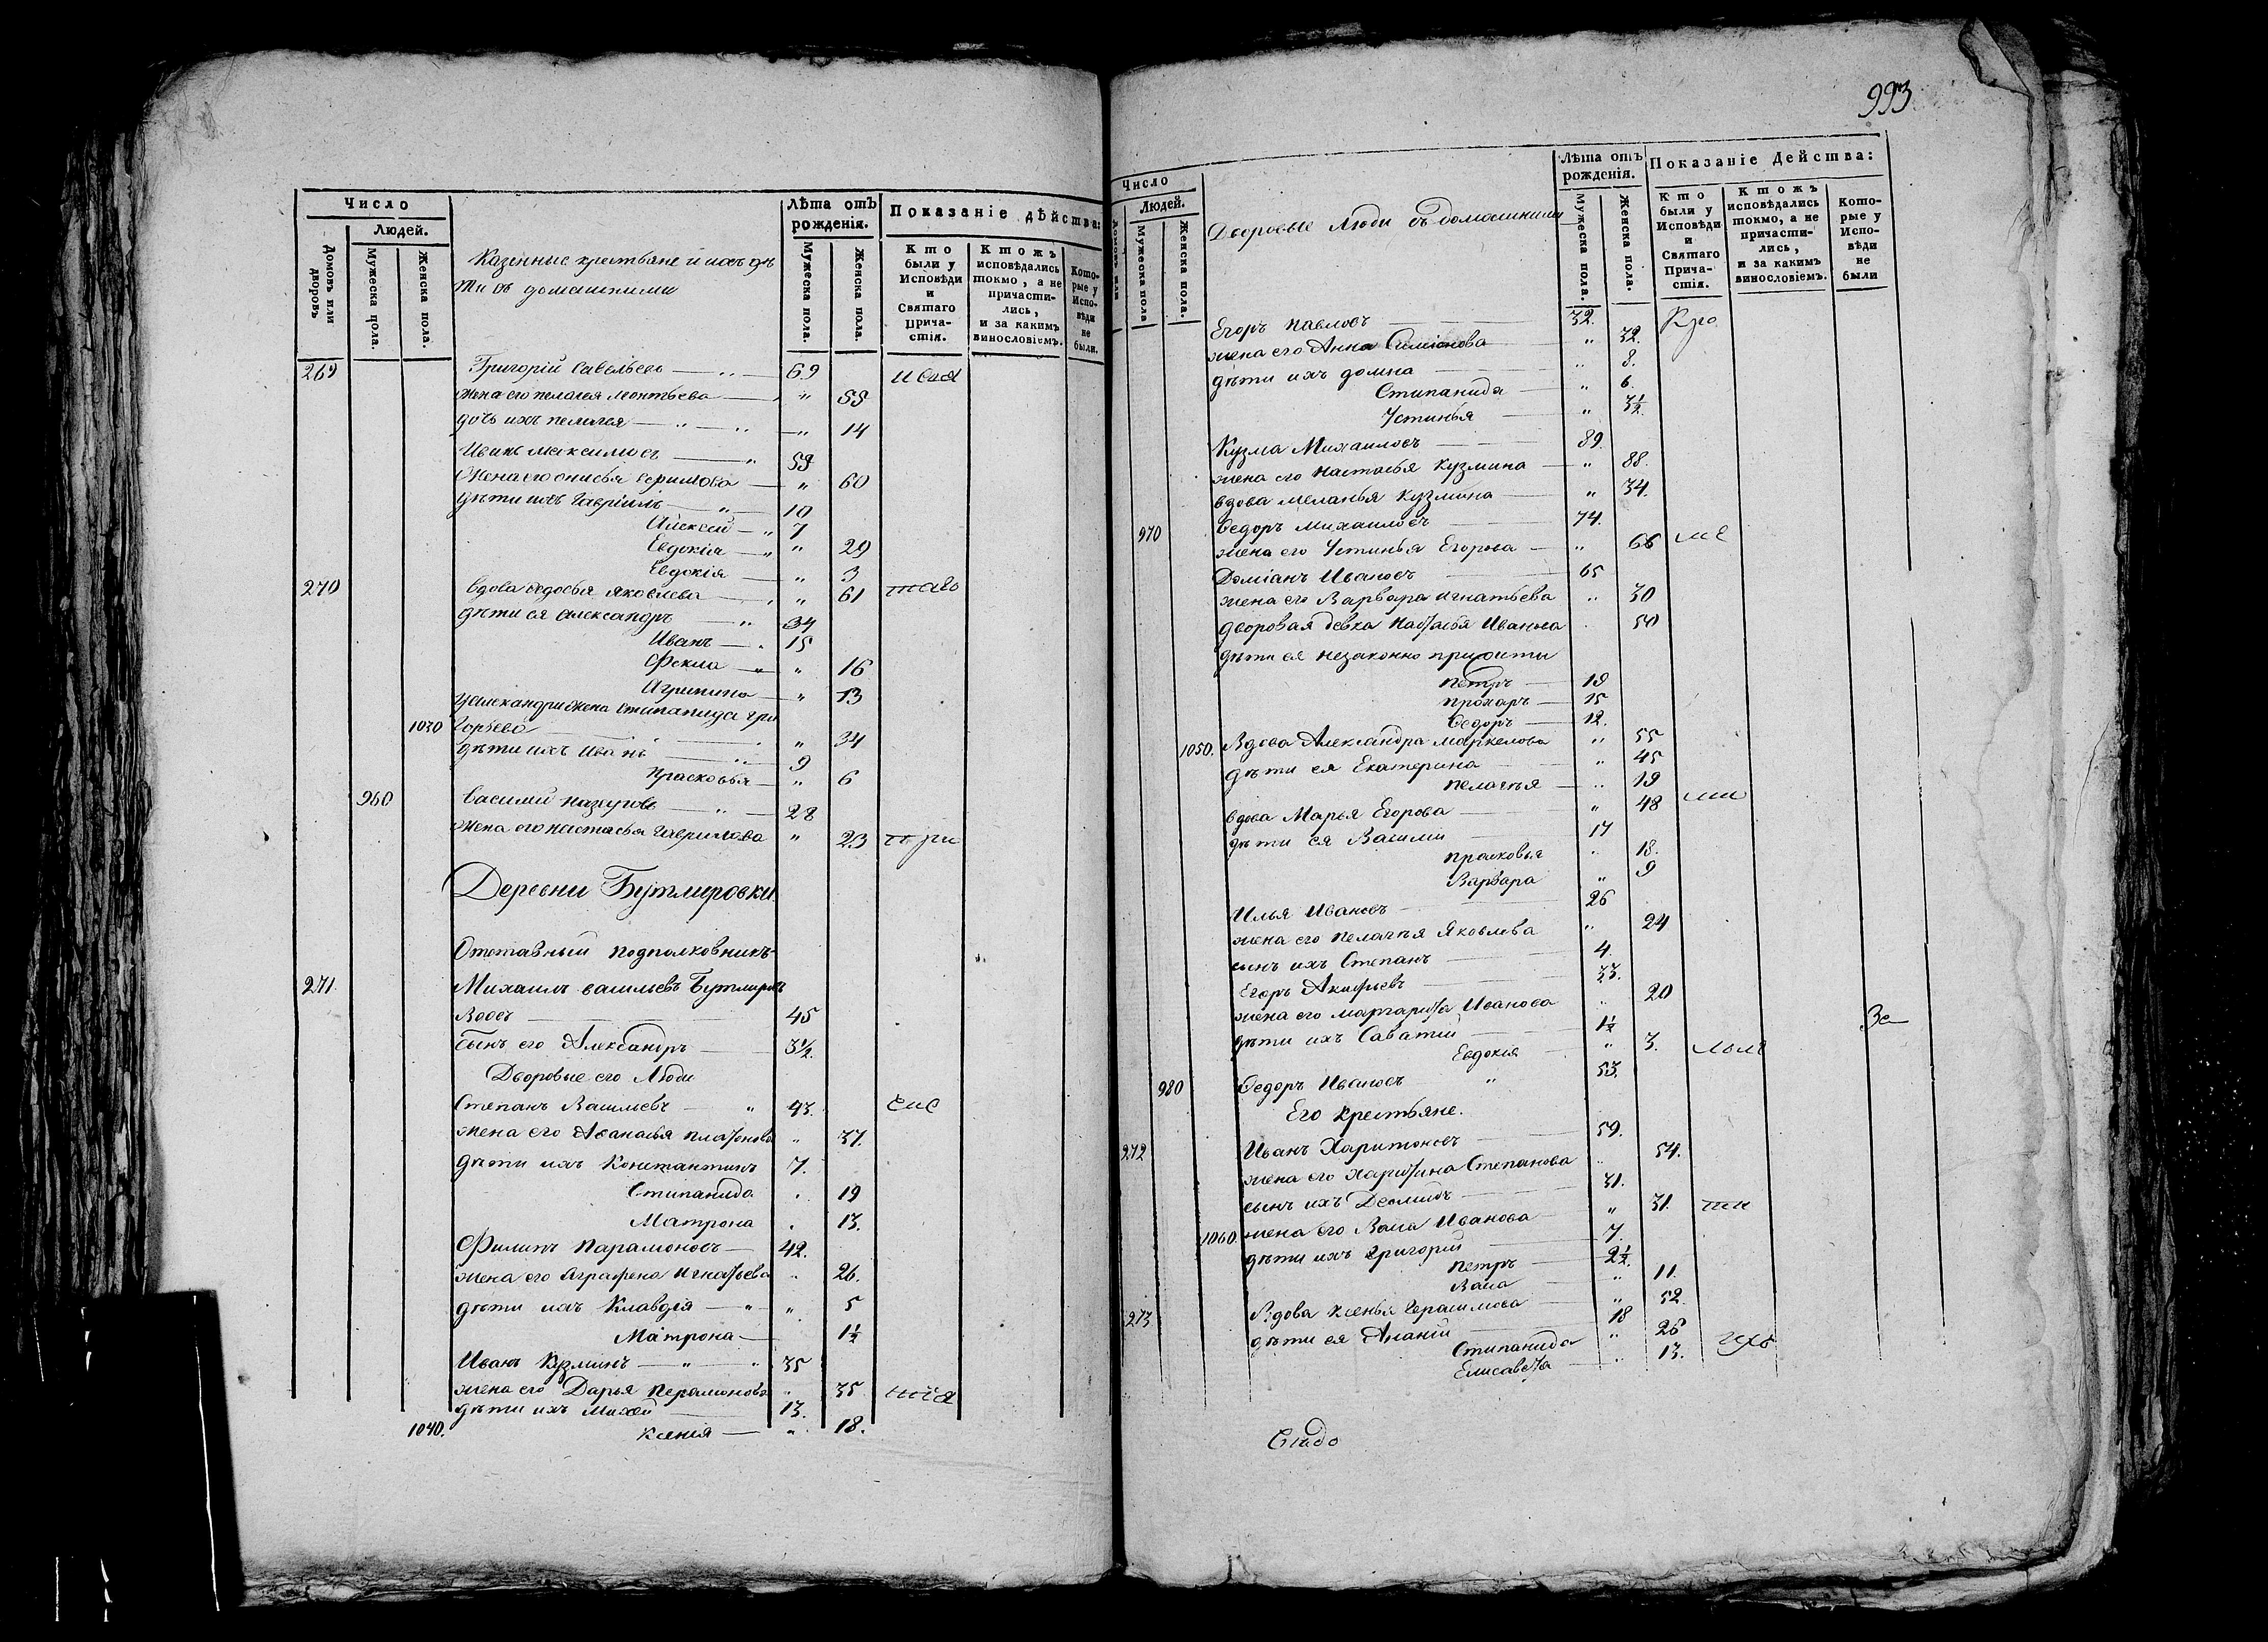 Число
Людей.
Домовъ или дворовъ
Мужеска пола.
Женска пола.
Казенные крестьяне и ихъ дѣ
ти съ домашними
Лѣта отъ рожденія.
Мужеска пола.
Женска пола.
Показаніе дѣйства:
Кто были у Исповѣди и Святаго Прича- стія.
Ктожъ исповѣдались токмо, а не причасти- лись, и за какимъ винословіемъ.
Кото- рые у Испо- вѣди не были.
269 Григорій Савельевъ 69
жена его пелагея леонтьева " 55
дочь ихъ пелагея " 14
Иванъ максимовъ 59
Жена его " 60
дѣти ихъ Гавріилъ 10
Алексей 7
Евдокія " 20
Евдокія " 3
270 вдова Ѳедосья яковлева " 61
дѣти ея александръ 34
Иванъ 15
Фекла " 16
Агрипина " 13
жена Стипанида гри
1030 горьева " 34
дѣти ихъ Иванъ 9
Прасковья " 6
960 Василий 28
жена его настасья Гаврилова " 23 при
Деревни Бутлировки
Отставный подполковникъ
271 Михаилъ васильевъ Бутлировъ
Вдовъ 45
сынъ его Александръ 3½
Дворовые его Люди
Степанъ Васильевъ " 43
жена его Афанасья платонова " 37.
дѣти ихъ Константинъ 7.
Стипанида 19
Матрона 13.
Филипъ Парамоновъ 42.
жена его Аграфена игнатьева " 26.
дѣти ихъ Клавдія " 5
Матрона 1½
Иванъ Кузминъ 35
жена его Дарья Парамонова " 35
дѣти ихъ Михей 13.
1040. Ксенія " 18.
993
Число
Людей.
Мужеска пола
Женска пола.
Дворовые Люди съ домашними
Лѣта отъ рожденія.
Мужеска пола.
Женска пола.
Показаніе Действа:
Кто были у Исповѣди и Святаго Прича- стія.
Ктожъ исповѣдались токмо, а не причасти- лись, и за какимъ винословіемъ.
Кото- рые у Испо- вѣди не были
Егоръ павловъ 32.
жена его Анна Симіонова " 32.
дѣти ихъ домна " 8.
Стипанида " 6.
Устинья " 3½.
Кузма Михаиловъ 89.
жена его настасья кузмина " 88.
вдова меланья кузмина " 34.
970 Ѳедоръ михаиловъ 74.
жена его Устинья Егорова " 66
Доміанъ Ивановъ 65
жена его Варвара игнатьева " 30
дворовая девка настасья Иванова 50
дѣти ея незаконно прижиты
петръ 19
прохаръ 15
Ѳедоръ 12.
1050. Вдова Александра маркелова " 55
дѣти ея Екатерина " 45
пелагея " 19
вдова Марья Егорова " 48
дѣти ея Василий 17
прасковья " 18.
Варвара " 9
Илья Ивановъ 26
жена его пелагея Яковлева " 24
сынъ ихъ Степанъ 4.
Егоръ Акифьевъ 33.
жена его маргарита Иванова " 20
дѣти ихъ Саватій 1½
Евдокія " 3.
980 Ѳедоръ Ивановъ 53.
Его крестьяне.
272 Иванъ Харитоновъ 59.
жена его харитина Степанова 54.
сынъ ихъ Деомидъ 31.
1060. жена его Васа Иванова " 31.
дѣти ихъ григорій 7.
петръ 2½.
Васа " 11.
273 Вдова ксенья герасимова " 52.
дѣти ея Ананій 18
Стипанида " 26
Елисавета " 13.